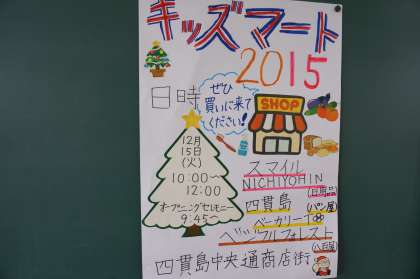 キッズマート
2015
日時
ぜひ
買いに来て
ください!
SHOP
12月
15日
(火)
10:00〜
12:00
オープニングセレモニー
9:45〜
スマイル
NICHIYOHIN
(日用品)
四貫島
ベーカリー
(パン屋)
ベジフルフォレスト
(八百屋)
四貫島中央通商店街